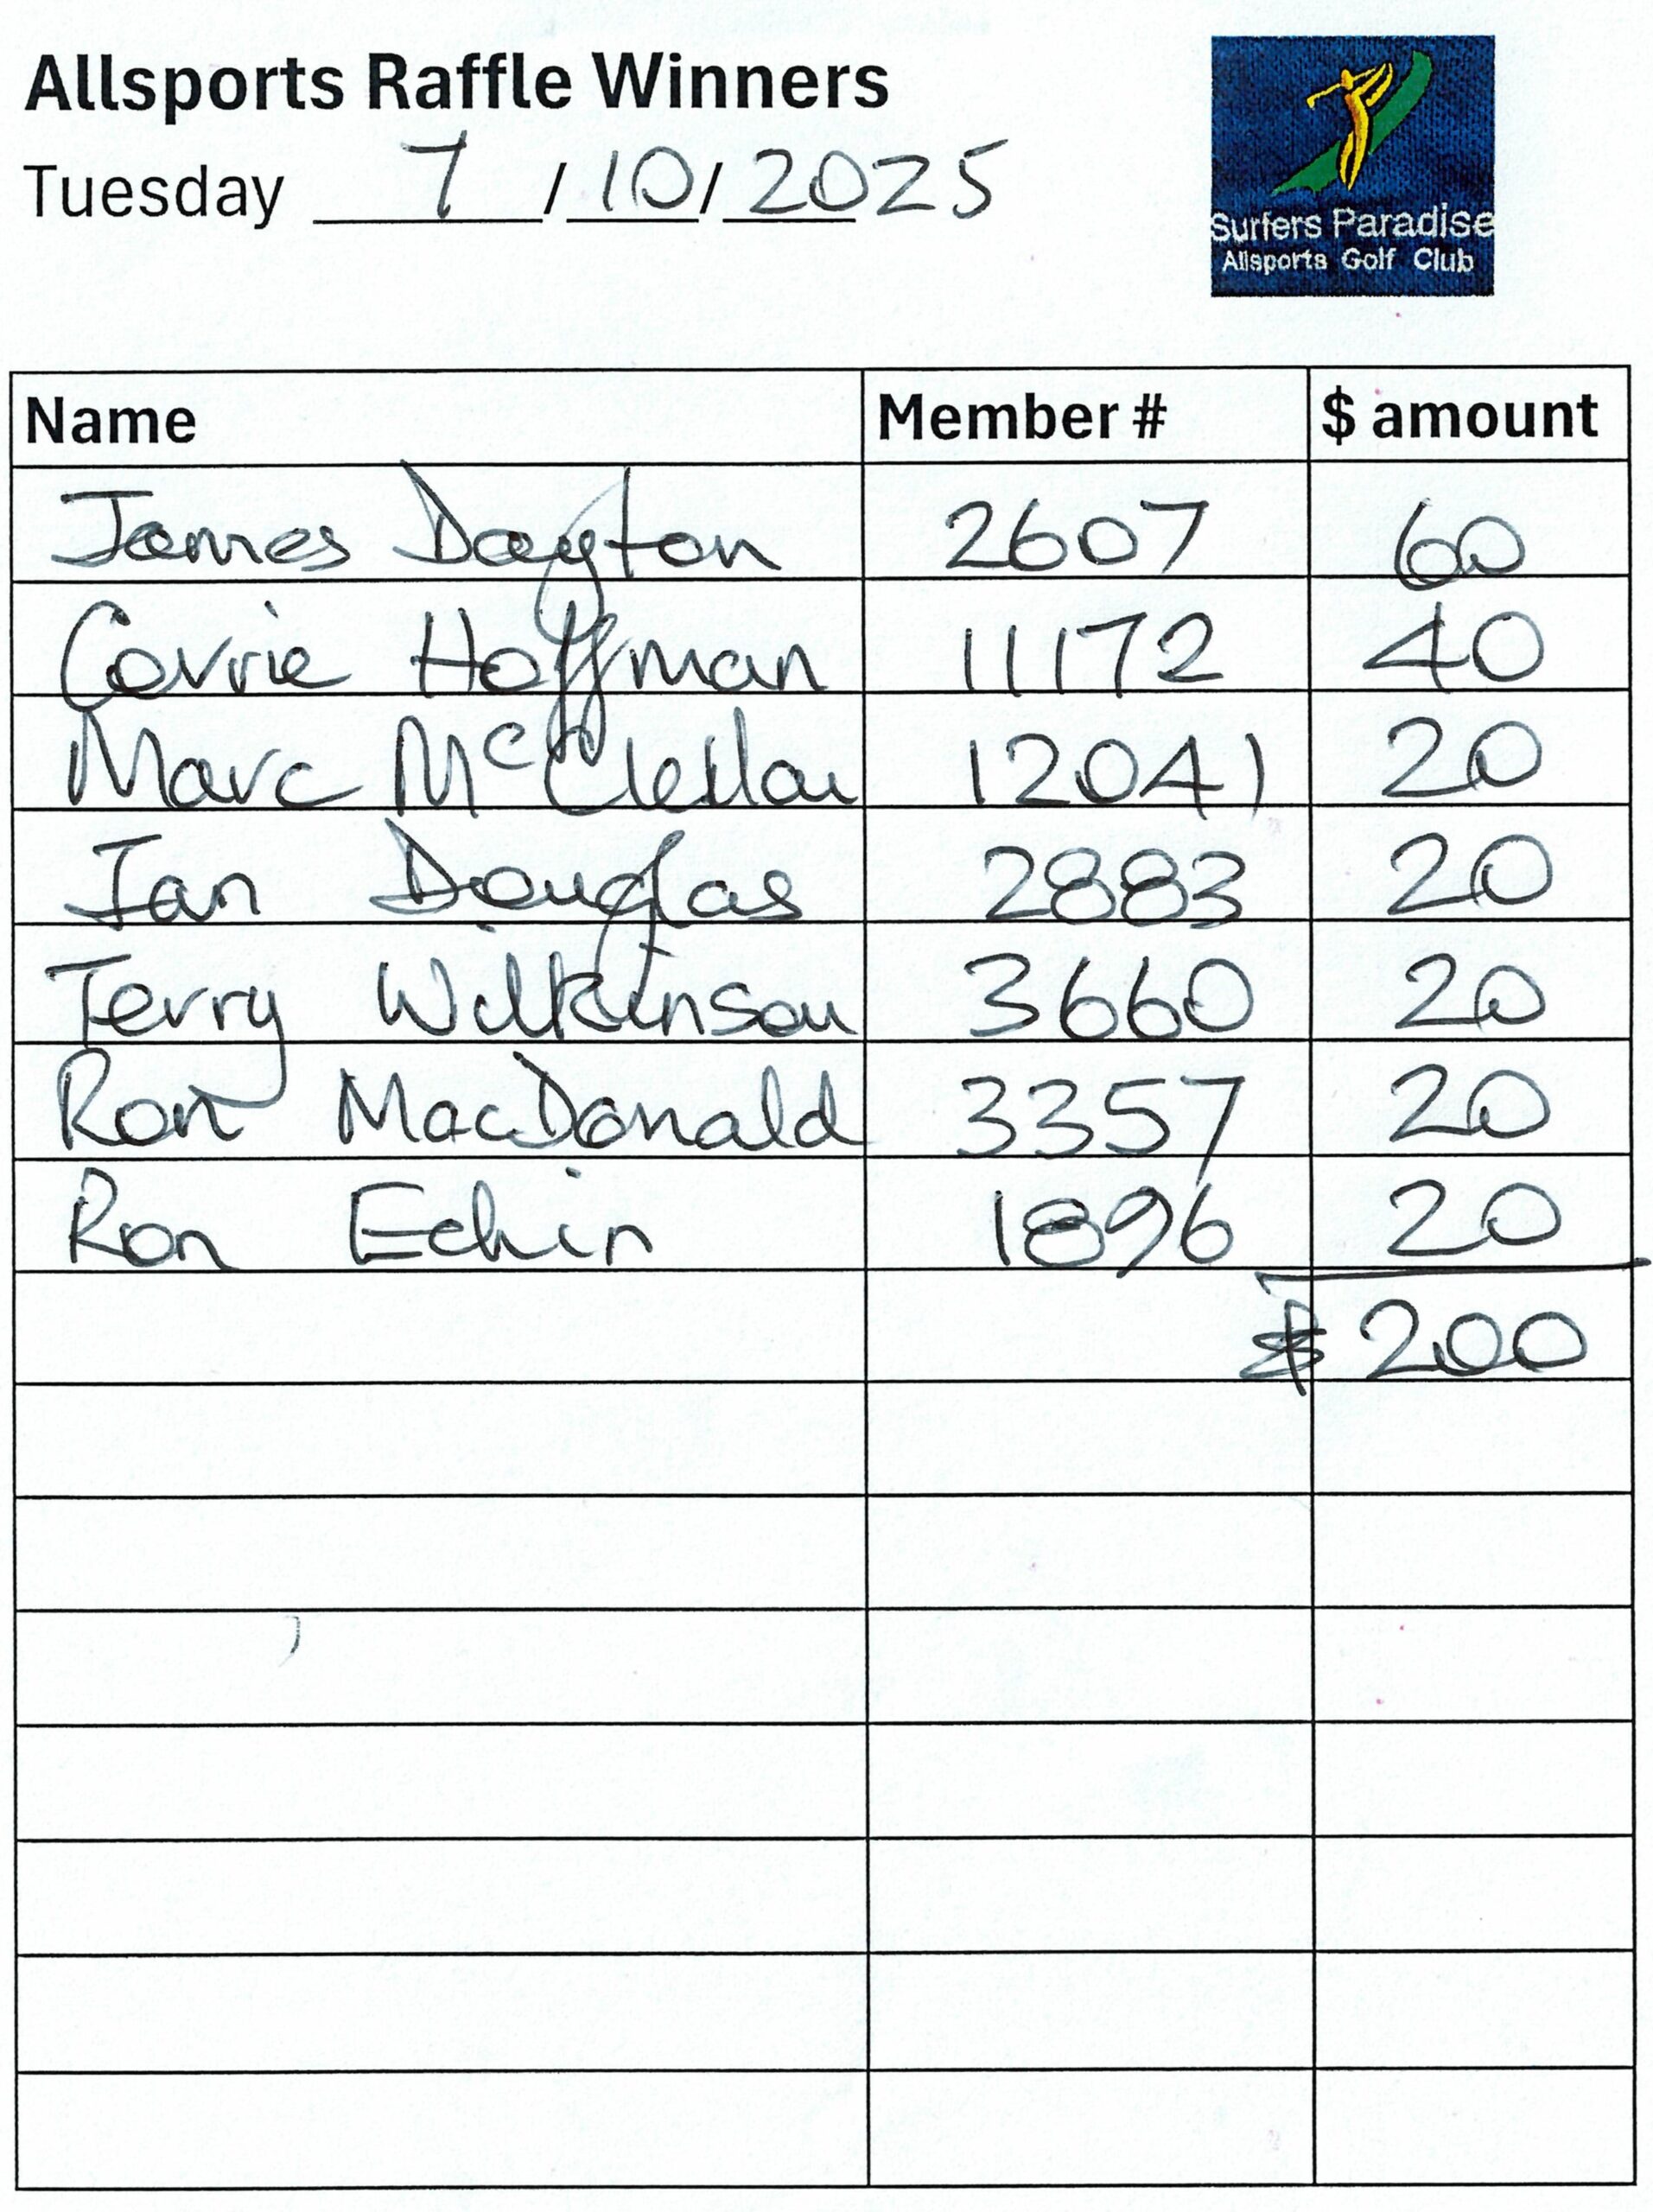 Allsports Raffle Winners
Tuesday 7/10/2025
Surfers Paradise
Allsports Golf Club
Name Member # $ amount
James Dayton 2607 60
Corrie Hoffman 11172 40
Marc McClellan 12041 20
Ian Douglas 2883 20
Terry Wilkinson 3660 20
Ron MacDonald 3357 20
Ron 1896 20
$ 200